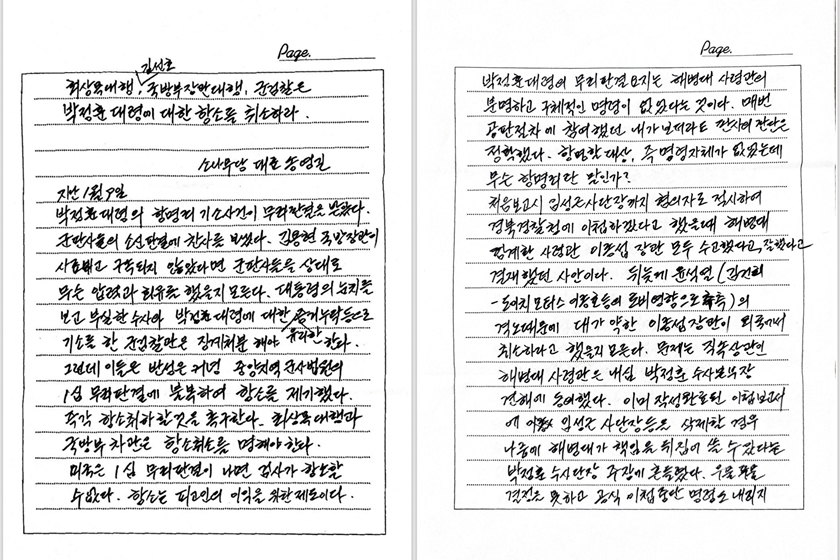 Page.
김선호
최상목대행, 국방부장관대행, 군검찰은
박정훈 대령에 대한 항소를 취소하라.
소나무당 대표 송영길
지난 1월 9일
박정훈 대령의 항명죄 기소사건이 무죄판결을 받았다.
군판사들의 소신판결에 찬사를 보냈다. 김용현 국방장관이
사표내고 구속되지 않았다면 군판사들을 상대로
무슨 압력과 회유를 했을지 모른다. 대통령의 눈치를
보고 부실한 수사와 박정훈 대령에 대한 증거부족등으로
기소를 한 군검찰단은 징계처분 해야 한다.
그런데 이들은 반성은 커녕 중앙지역 군사법원의
1심 무죄판결에 불복하여 항소를 제기했다.
즉각 항소취하할것을 촉구한다. 최상목대행과
국방부 차관은 항소취소를 명해야한다.
미국은 1심 무죄판결이 나면 검사가 항소할
수없다. 항소는 피고인의 이익을 위한제도이다.
Page.
박정훈대령의 무죄판결요지는 해병대 사령관의
분명하고 구체적인 명령이 없었다는 것이다. 매번
공판절차에 참여했던 내가 보더라도 판사의 판단은
정확했다. 항명할대상, 즉 명령자체가 없었는데
무슨 항명죄란 말인가?
처음보고시 임성근사단장까지 혐의자로 적시하여
경북경찰청에 이첩하겠다고 했을때 해병대
김계환 사령관 이종섭 장관 모두 수고했다고, 잘했다고
결재했던 사안이다. 뒤늦게 윤석열 (김건희
-도이치 모터스 이종호등의 로비영향으로 추측)의
격노때문에 대가 약한 이종섭장관이 외국가서
취소하라고 했을지 모른다. 문제는 직속상관인
해병대 사령관은 내심 박정훈 수사본부장
견해에 동의했다. 이미 작성완료된 이첩보고서
에 임성근 사단장등을 삭제할 경우
나중에 해병대가 책임을 뒤집어 쓸 수있다는
박정훈 수사단장 주장에 흔들렸다. 우물쭈물
결정을 못하고 공식 이첩중단 명령도 내리지